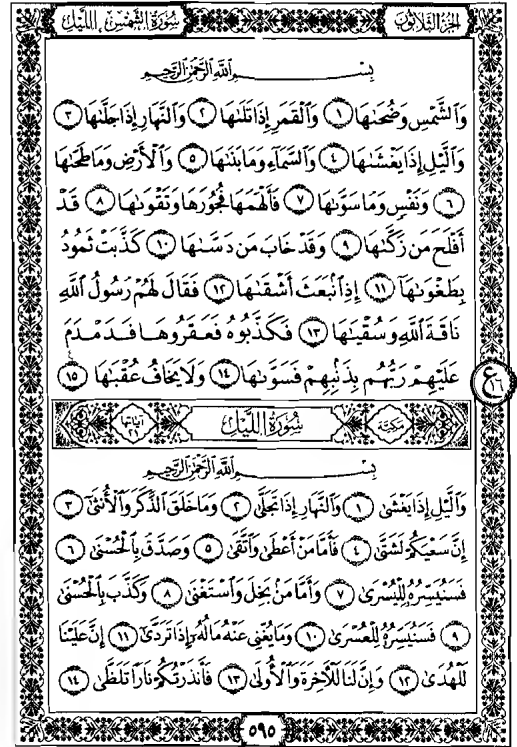 الجزء الثلاثون
سورة الشمس، الليل
بِسْمِ اللَّهِ الرَّحْمَٰنِ الرَّحِيمِ
وَالشَّمْسِ وَضُحَىٰهَا ١ وَالْقَمَرِ إِذَا تَلَىٰهَا ٢ وَالنَّهَارِ إِذَا جَلَّىٰهَا ٣
وَالَّيْلِ إِذَا يَغْشَىٰهَا ٤ وَالسَّمَاءِ وَمَا بَنَىٰهَا ٥ وَالْأَرْضِ وَمَا طَحَىٰهَا
٦ وَنَفْسٍ وَمَا سَوَّىٰهَا ٧ فَأَلْهَمَهَا فُجُورَهَا وَتَقْوَىٰهَا ٨ قَدْ
أَفْلَحَ مَن زَكَّىٰهَا ٩ وَقَدْ خَابَ مَن دَسَّىٰهَا ١٠ كَذَّبَتْ ثَمُودُ
بِطَغْوَىٰهَا ١١ إِذِ انۢبَعَثَ أَشْقَىٰهَا ١٢ فَقَالَ لَهُمْ رَسُولُ اللَّهِ
نَاقَةَ اللَّهِ وَسُقْيَٰهَا ١٣ فَكَذَّبُوهُ فَعَقَرُوهَا فَدَمْدَمَ
عَلَيْهِمْ رَبُّهُم بِذَنۢبِهِمْ فَسَوَّىٰهَا ١٤ وَلَا يَخَافُ عُقْبَٰهَا ١٥
ع ١٦
مكية
سُورَةُ اللَّيْلِ
آياتها ٢١
بِسْمِ اللَّهِ الرَّحْمَٰنِ الرَّحِيمِ
وَالَّيْلِ إِذَا يَغْشَىٰ ١ وَالنَّهَارِ إِذَا تَجَلَّىٰ ٢ وَمَا خَلَقَ الذَّكَرَ وَالْأُنثَىٰ ٣
إِنَّ سَعْيَكُمْ لَشَتَّىٰ ٤ فَأَمَّا مَنْ أَعْطَىٰ وَاتَّقَىٰ ٥ وَصَدَّقَ بِالْحُسْنَىٰ ٦
فَسَنُيَسِّرُهُ لِلْيُسْرَىٰ ٧ وَأَمَّا مَنۢ بَخِلَ وَاسْتَغْنَىٰ ٨ وَكَذَّبَ بِالْحُسْنَىٰ
٩ فَسَنُيَسِّرُهُ لِلْعُسْرَىٰ ١٠ وَمَا يُغْنِي عَنْهُ مَالُهُ إِذَا تَرَدَّىٰ ١١ إِنَّ عَلَيْنَا
لَلْهُدَىٰ ١٢ وَإِنَّ لَنَا لَلْآخِرَةَ وَالْأُولَىٰ ١٣ فَأَنذَرْتُكُمْ نَارًا تَلَظَّىٰ ١٤
٥٩٥